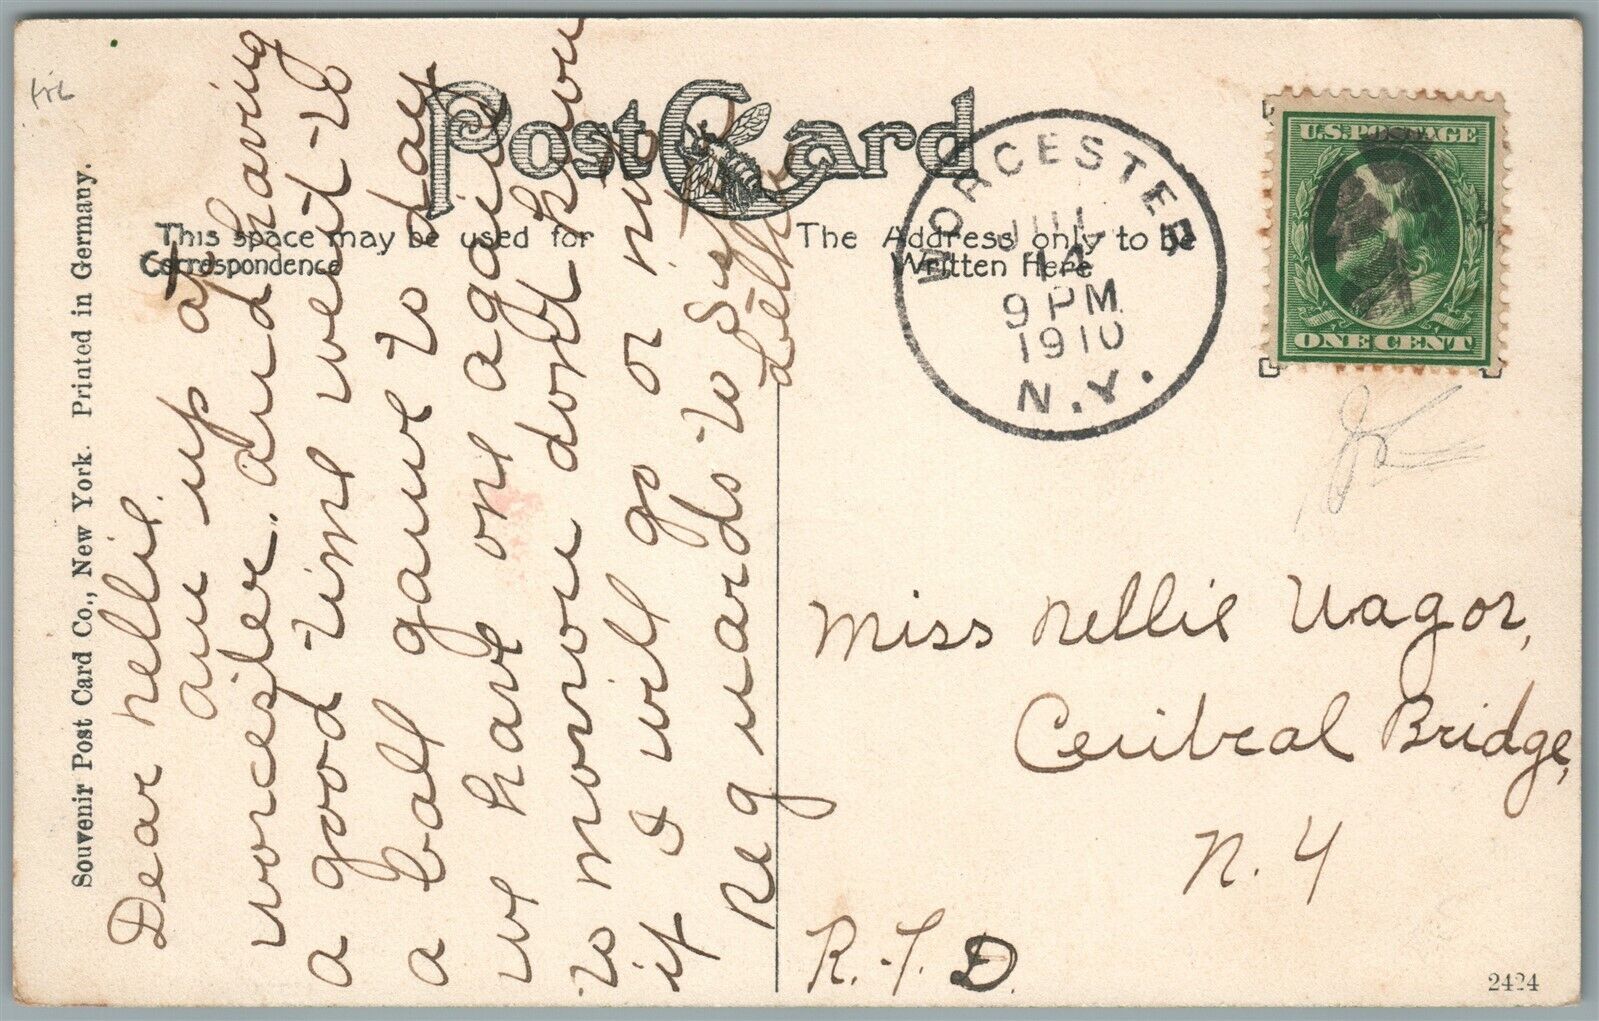 Souvenir Post Card Co., New York. Printed in Germany.
Post Card
This space may be used for
Correspondence
The Address only to be
Written Here
WORCESTER
JUL
14
9 PM
1910
N.Y.
U.S. POSTAGE
ONE CENT
Dear Nellie.
I am up
worcester. and having
a good time went to
a ball game to day
we have one again
to morrow dont know
if I will go or
Regards to
Miss Nellie
Central Bridge,
N. Y
R. F. D.
2424